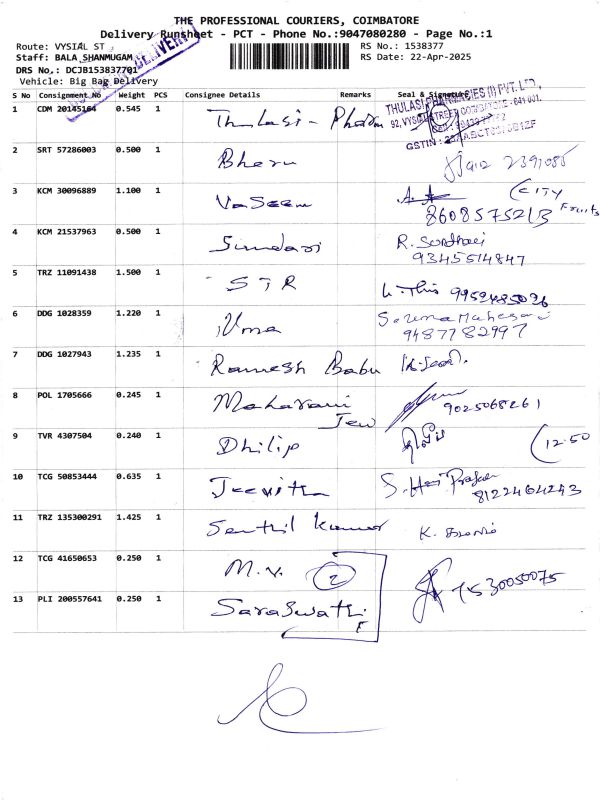 THE PROFESSIONAL COURIERS, COIMBATORE
Delivery Runsheet - PCT - Phone No.:9047080280 - Page No.:1
Route: VYSIAL ST RS No.: 1538377
Staff: BALA SHANMUGAM RS Date: 22-Apr-2025
DRS No.: DCJB153837701
Vehicle: Big Bag Delivery
DELIVERY
S No Consignment No Weight PCS Consignee Details Remarks Seal & Signature
THULASI PHARMACIES (I) PVT. LTD.,
1 CDM 20145164 0.545 1 Thulasi - Pharm
GSTIN :
2 SRT 57286003 0.500 1 Bheru
3 KCM 30096889 1.100 1 Vaseem (CITY Fruits
8608575213
4 KCM 21537963 0.500 1 Sundari R.
9345514847
5 TRZ 11091438 1.500 1 STR 9952485026
6 DDG 1028359 1.220 1 Uma S. Uma Maheswari
9487782997
7 DDG 1027943 1.235 1 Ramesh Babu
8 POL 1705666 0.245 1 Maharani Jew 9025068261
9 TVR 4307504 0.240 1 Dhilip (12.50
10 TCG 50853444 0.635 1 Jeevitha S. Hari
8122464243
11 TRZ 135300291 1.425 1 Senthil Kumar K.
12 TCG 41650653 0.250 1 M.V. 2 7530050075
13 PLI 200557641 0.250 1 Saraswathi